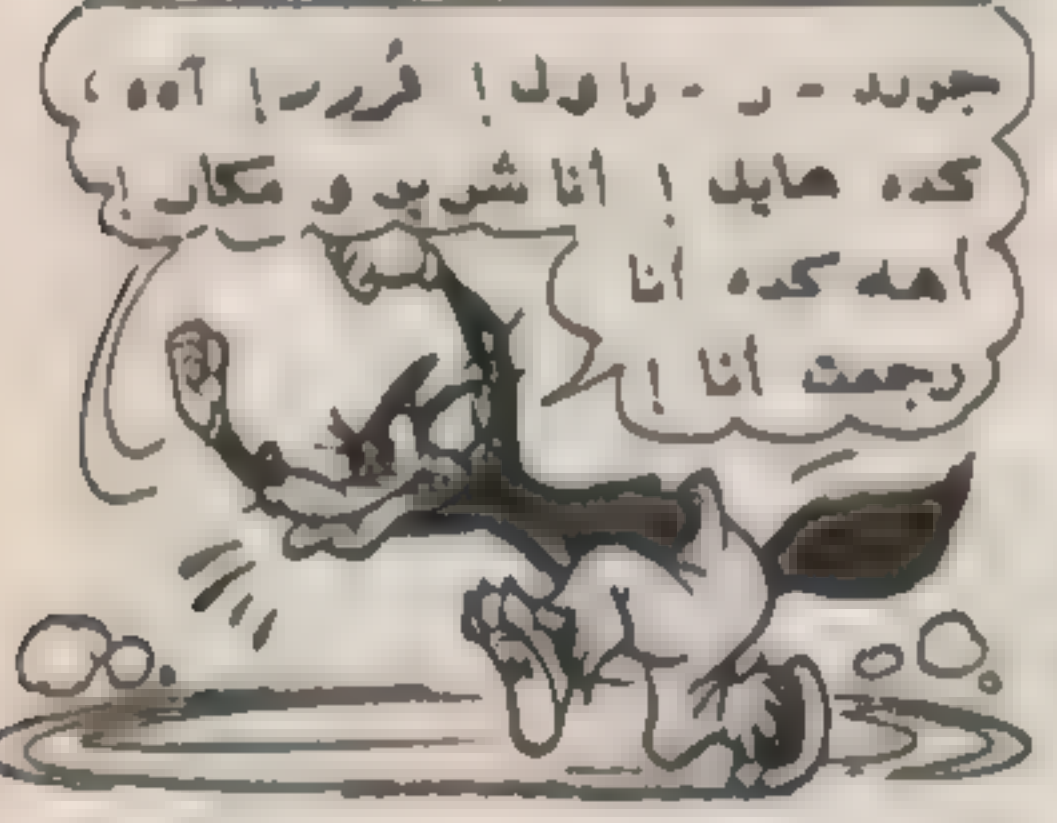 جررر - ر - راول ! قررر ! آه ،
كده هايل ! أنا شرير و مكار !
أهه كده أنا
رجعت أنا !